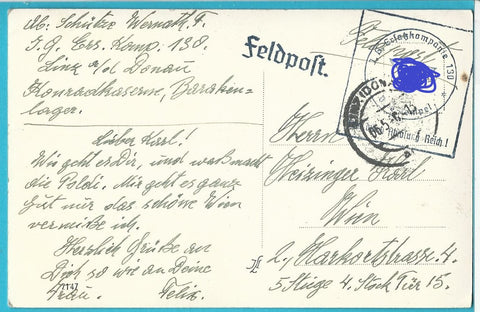 Ab: Schütze Wernath F.
I. G. Ers. Komp. 130.
Linz a/d Donau
Konradkaserne, Baraken-
lager.
Feldpost.
Ers. Kompanie 130
Deutsch. Reich!
Lieber Karl!
Wie geht es Dir, und was macht
die Poldi. Mir geht es ganz
gut nur das schöne Wien
vermiße ich.
Herzlich Grüße an
Dich so wie an Deine
Frau. Felix.
7147
Herrn
Heizinger Karl
Wien
2., Harkortstrasse. 4.
5 Stiege 4. Stock Tür 15.